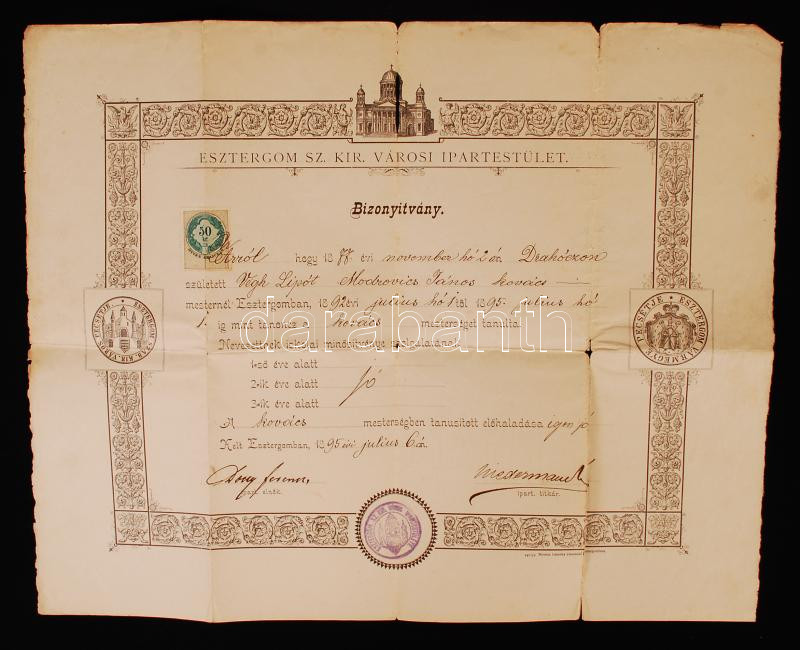 ESZTERGOM SZ. KIR. VÁROSI IPARTESTÜLET.
Bizonyitvány.
50
Arról hogy 1877 évi november hó 2 án Drahóczon
született Végh Lipót Modrovics János kovács
mesternél Esztergomban, 1892 évi julius hó 1 től 1895. julius hó
1. ig mint tanoncz a kovács mesterséget tanulta.
Nevezettnek iskolai minősitvénye szolgálatánál:
1-ső éve alatt
2-ik éve alatt jó
3-ik éve alatt
A kovács mesterségben tanusitott előhaladása igen jó
Kelt Esztergomban, 1895 évi julius 6 án.
ferencz
Niedermann
ipart. elnök.
ipart. titkár.
ESZTERGOM SZAB. KIR. VÁROS PECSÉTJE
ESZTERGOM VÁRMEGYE PECSÉTJE
darabanth